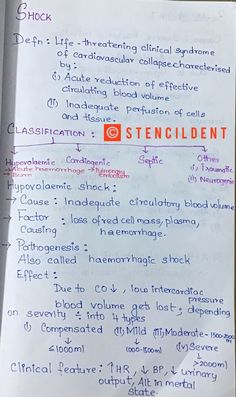 SHOCK
Defn: Life-threatening clinical syndrome
of cardiovascular collapse charecterised
by:
(i) Acute reduction of effective
circulating blood volume
(ii) Inadequate perfusion of cells
and tissue.
CLASSIFICATION:
© STENCILDENT
Hypovolaemic Cardiogenic Septic Other
→ Acute haemorrhage → Pulmonary (i) Traumatic
→ Burn Embolism (ii) Neurogenic
Hypovolaemic shock:
→ Cause: Inadequate circulatory blood volume
→ Factor : loss of red cell mass, plasma,
causing haemorrhage.
→ Pathogenesis:
Also called haemorrhagic shock
Effect:
Due to CO↓, low intercardiac
pressure
blood volume gets lost; depending
on severity ÷ into 4 types
(i) Compensated (ii) Mild (iii) Moderate-1500-2000ml
≤1000ml 1000-1500ml (iv) Severe
>2000ml
Clinical feature: ↑HR, ↓BP, ↓urinary
output, Alt in mental
state.